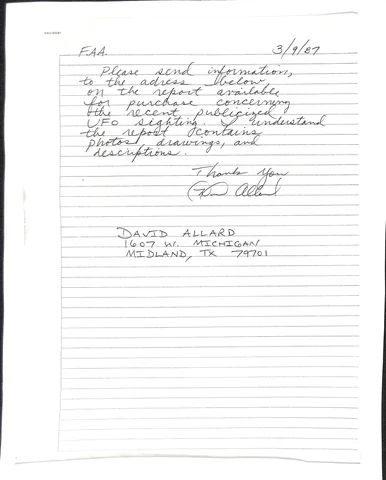 FAA 3/9/87
Please send information,
to the adress below,
on the report available
for purchase concerning
the recent publicized
UFO sighting. I understand
the report contains
photos, drawings, and
descriptions.
Thank You
Allard
DAVID ALLARD
1607 W. MICHIGAN
MIDLAND, TX 79701